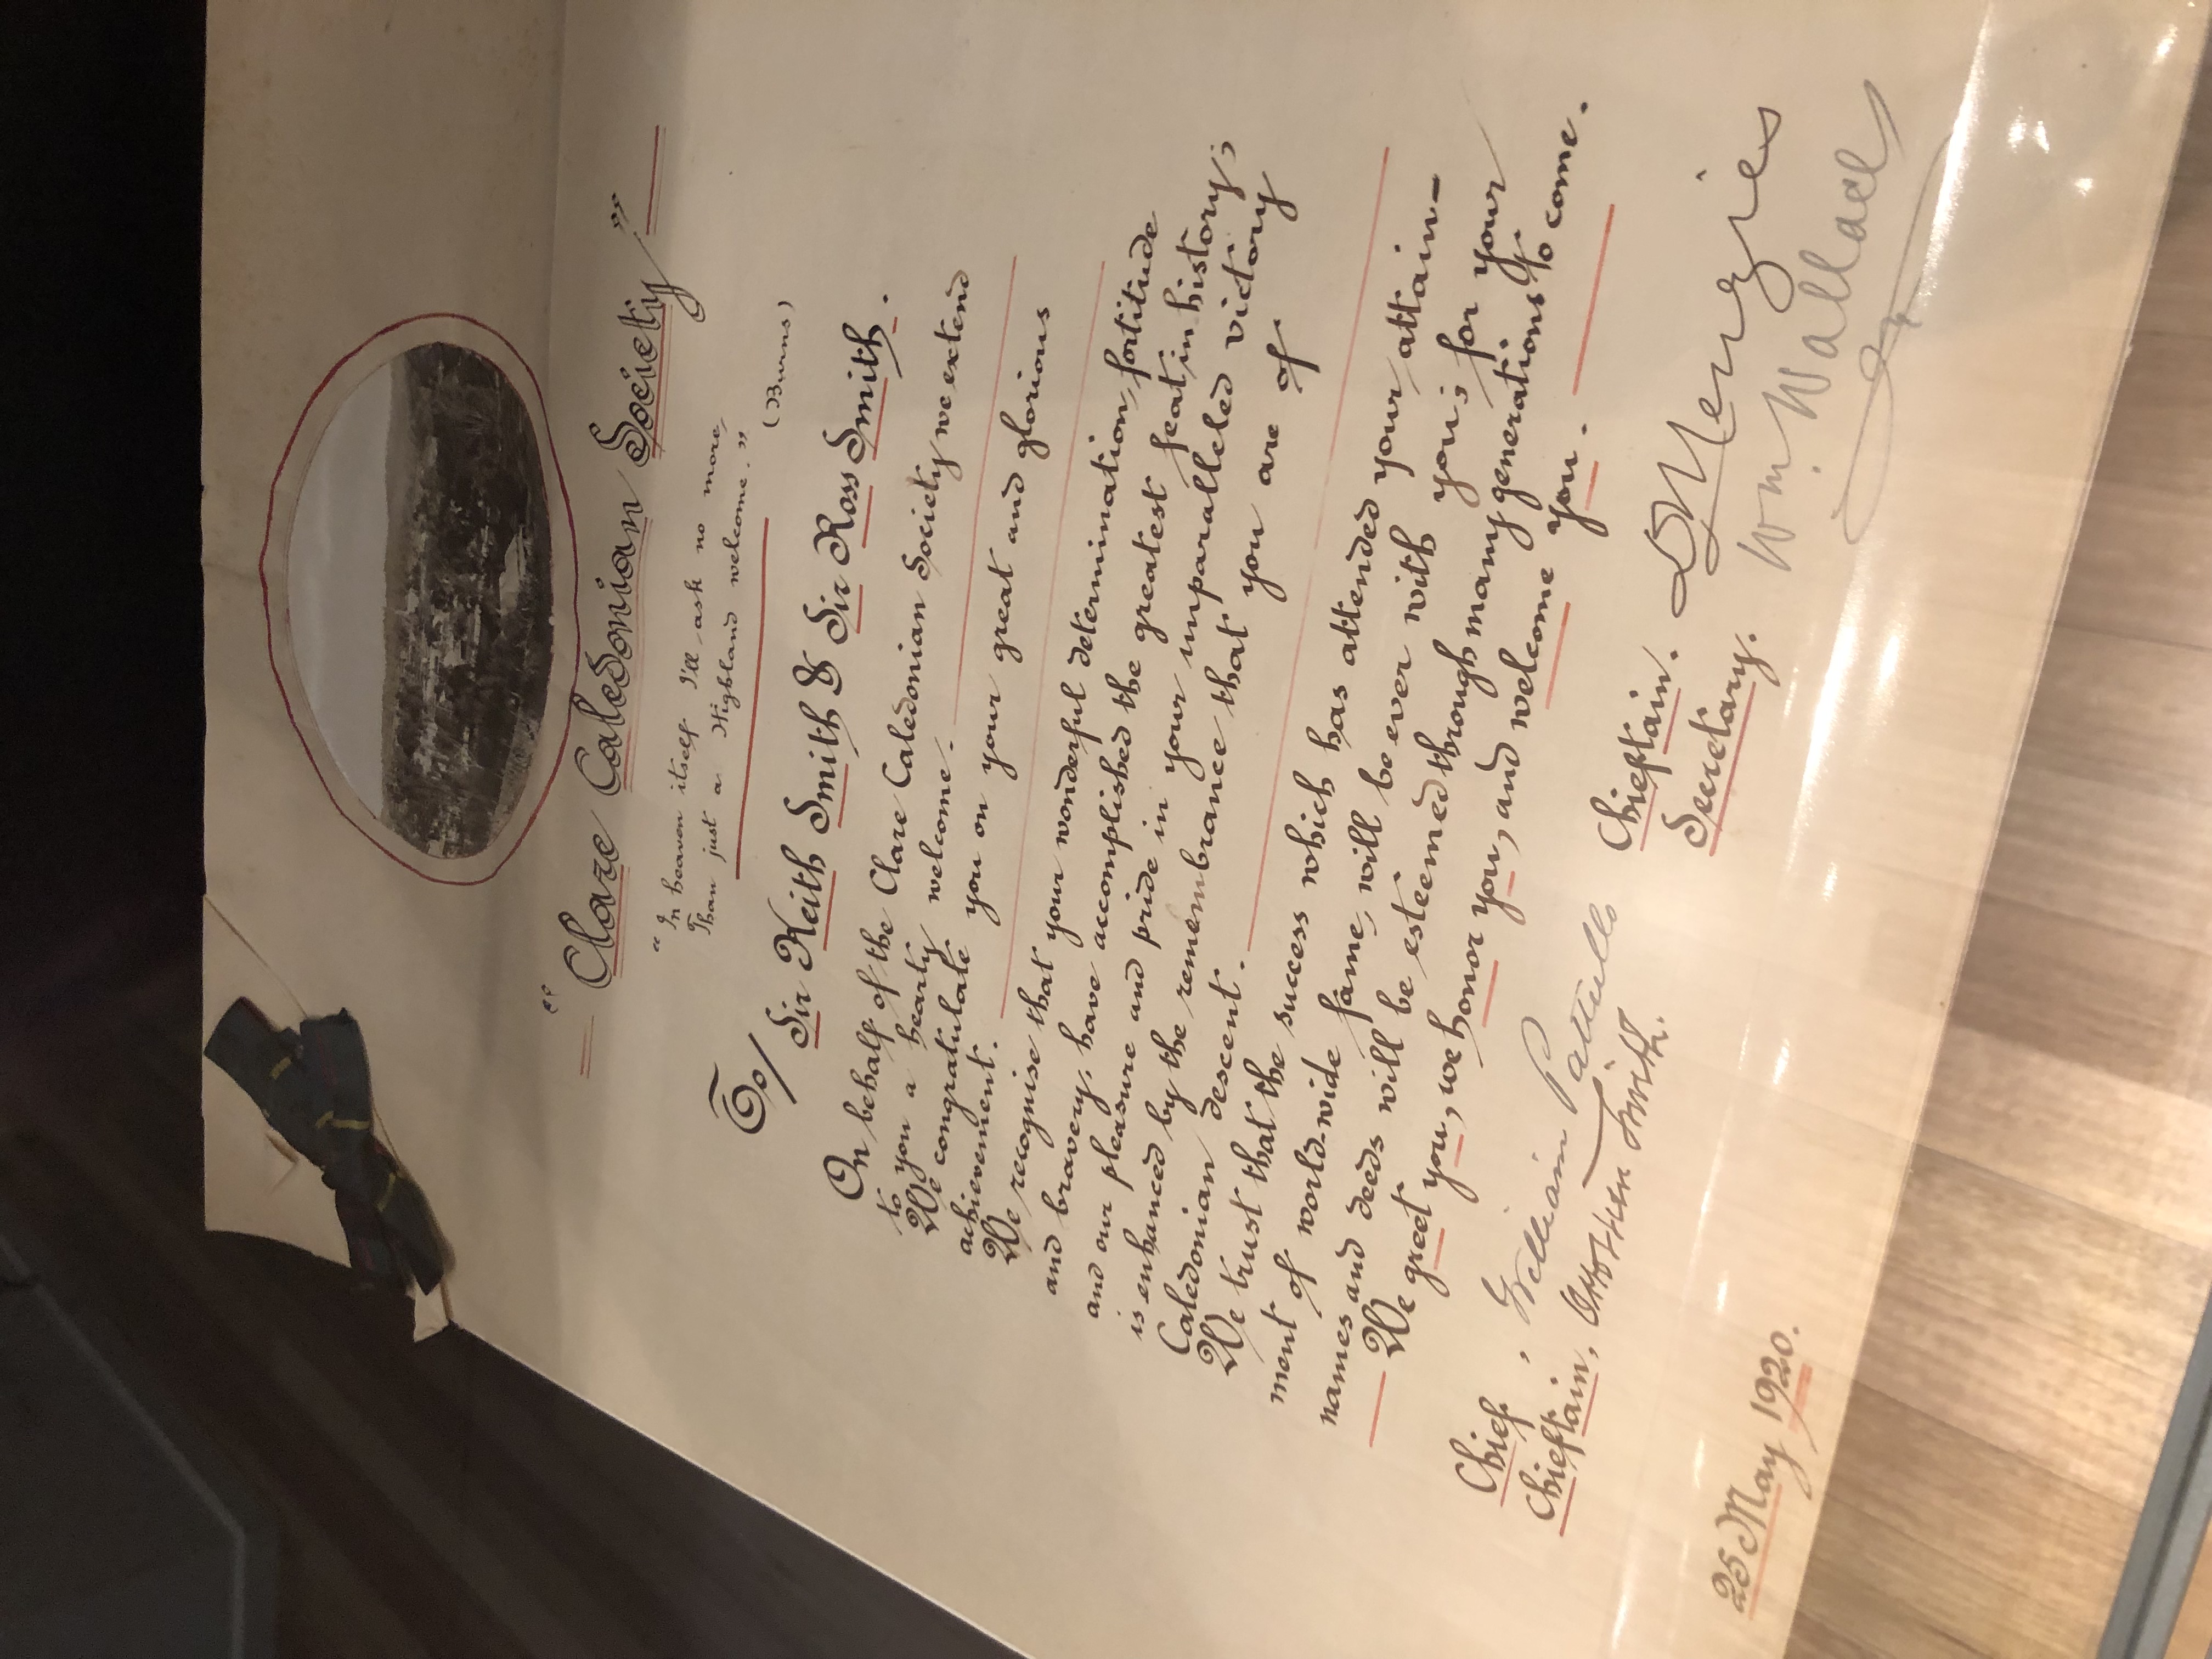 " Clare Caledonian Society "
" In heaven itself I'll ask no more,
Than just a Highland welcome. "
(Burns)
To/
Sir Keith Smith & Sir Ross Smith.
On behalf of the Clare Caledonian Society we extend
to you a hearty welcome.
We congratulate you on your great and glorious
achievement.
We recognise that your wonderful determination, fortitude
and bravery, have accomplished the greatest feat in history;
and our pleasure and pride in your unparalleled victory
is enhanced by the remembrance that you are of
Caledonian descent.
We trust that the success which has attended your attain-
ment of world-wide fame, will be ever with you; for your
names and deeds will be esteemed through many generations to come.
We greet you, we honor you, and welcome you.
Chief, William Pattullo
Chieftain, Smith.
Chieftain. Menzies
Secretary. Wm. Wallace
25 May 1920.